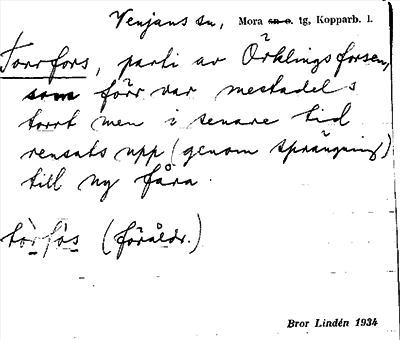 Venjans sn, Mora sn o. tg, Kopparb. l.
Torrfors, parti av Örklingsforsen,
som förr var mestadels
torrt men i senare tid
rensats upp (genom sprängning)
till ny fåra.
tòrfòs (föråldr.)
Bror Lindén 1934